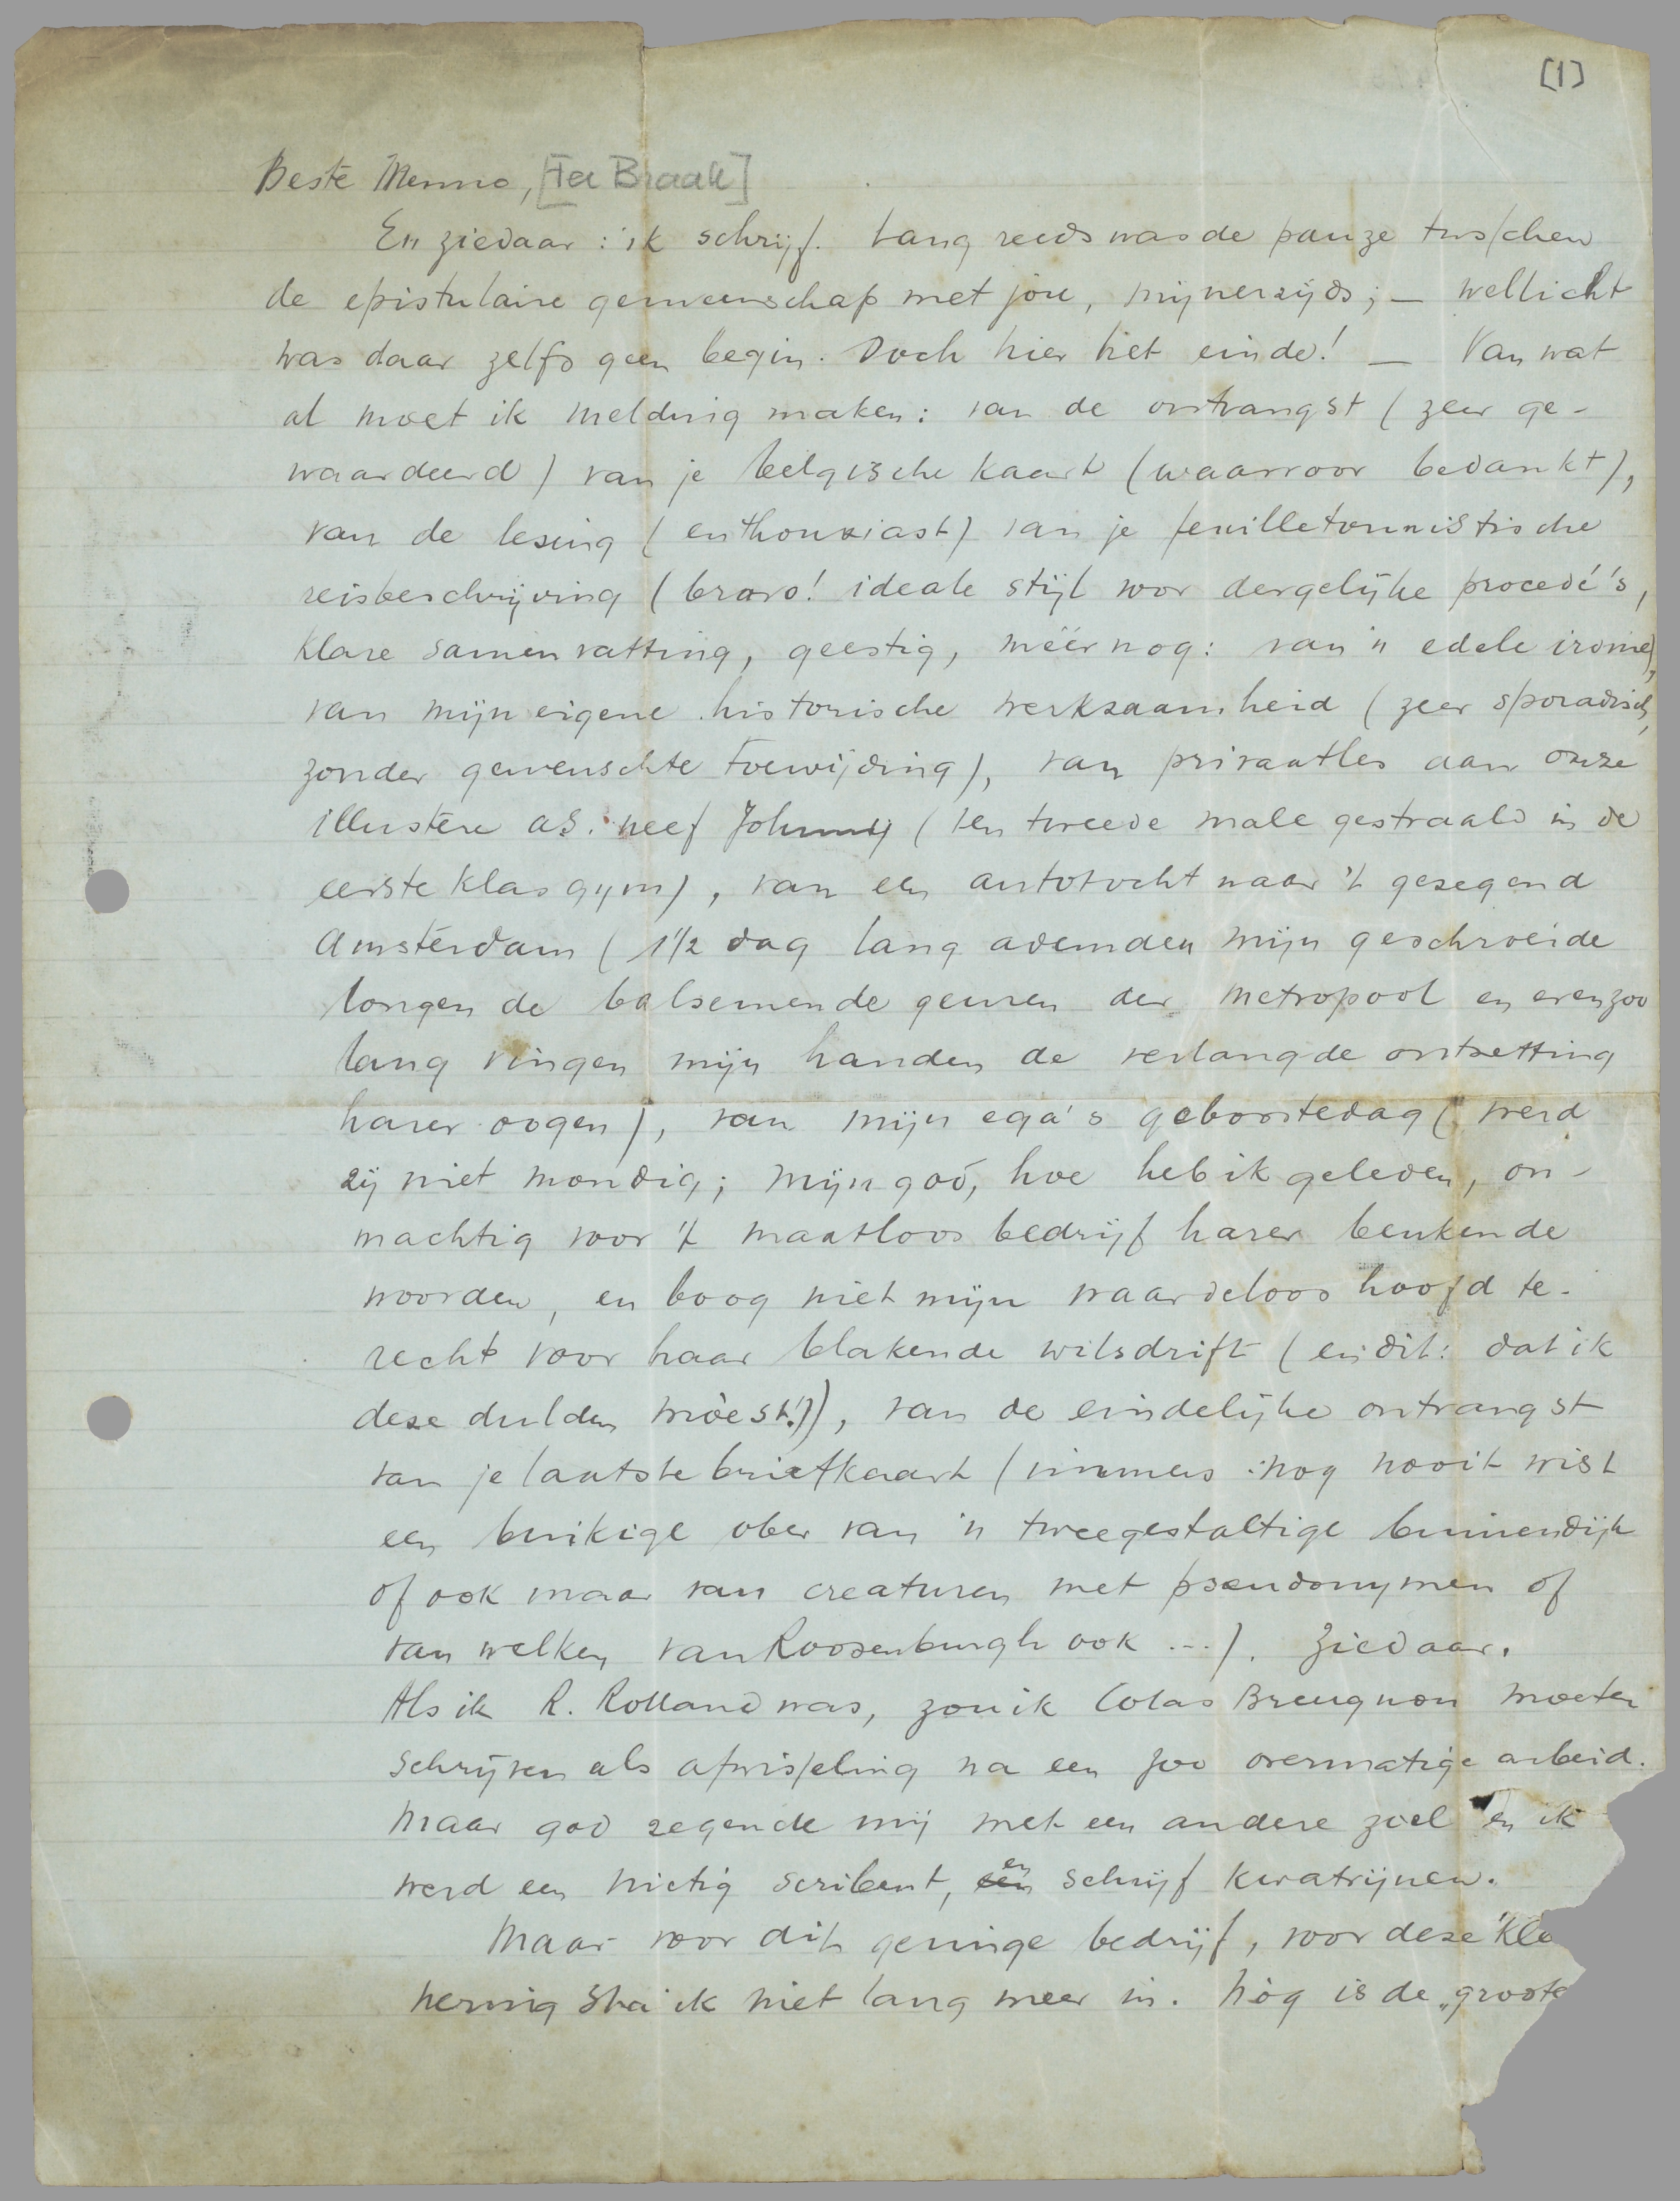 [1]
Beste Menno, [Ter Braak]
En ziedaar : ik schrijf. Lang reeds was de pauze tusschen
de epistulaire gemeenschap met jou, mijnerzijds; — wellicht
was daar zelfs geen begin. Doch hier het einde! — Van wat
al moet ik melding maken: van de ontvangst (zeer ge-
waardeerd) van je belgische kaart (waarvoor bedankt),
van de lezing (enthousiast) van je feuilletonnistische
reisbeschrijving (bravo! ideale stijl voor dergelijke procedé's,
klare samenvatting, geestig, méér nog: van 'n edele ironie),
van mijn eigene historische werkzaamheid (zeer sporadisch,
zonder gewenschte toewijding), van privaatles aan onze
illustere as. neef Johnny (ten tweede male gestraald in de
eerste klas gym), van een autotocht naar 't gezegend
Amsterdam (1½ dag lang ademden mijn geschroeide
longen de balsemende geuren der metropool en evenzoo
lang vingen mijn handen de verlangde ontzetting
harer oogen), van mijn ega's geboortedag (werd
zij niet mondig; mijn god, hoe heb ik geleden, on-
machtig voor 't maatloos bedrijf harer beukende
woorden, en boog niet mijn waardeloos hoofd te-
recht voor haar blakende wilsdrift (en dit: dat ik
deze dulden mòest!)), van de eindelijke ontvangst
van je laatste briefkaart (immers : nog nooit wist
een buikige ober van 'n tweegestaltige binnendijk
of ook maar van creaturen met pseudonymen of
van welken van Roosenburgh ook ...). Ziedaar.
Als ik R. Rolland was, zou ik Colas Breugnon moeten
schrijven als afwisseling na een zoo overmatige arbeid.
Maar god zegende mij met een andere ziel en ik
werd een nietig scribent, en schrijf kwatrijnen.
Maar voor dit geringe bedrijf, voor deze kle
nering sta ik niet lang meer in. Nòg is de „groote